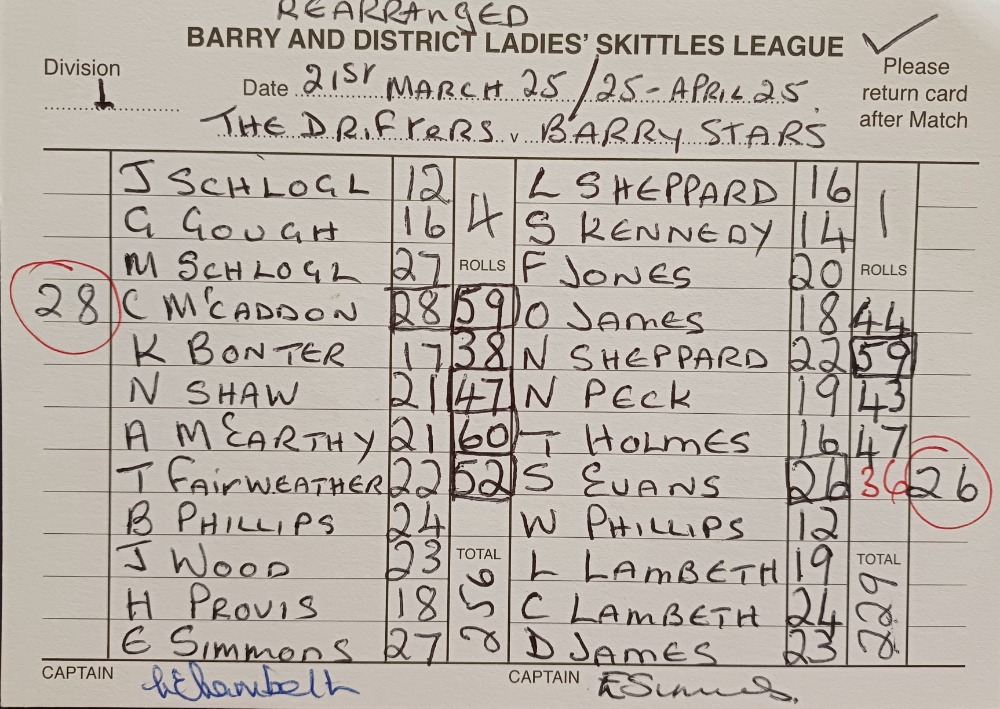 REARRANGED
BARRY AND DISTRICT LADIES' SKITTLES LEAGUE ✓
Division 1
Date 21ST MARCH 25 / 25-APRIL 25.
Please return card after Match
THE DRIFTERS v BARRY STARS
J SCHLOGL 12 4 L SHEPPARD 16 1
G GOUGH 16 S KENNEDY 14
M SCHLOGL 27 ROLLS F JONES 20 ROLLS
28 C McCADDON 28 59 O JAMES 18 44
K BONTER 17 38 N SHEPPARD 22 59
N SHAW 21 47 N PECK 19 43
A McEARTHY 21 60 T HOLMES 16 47
T FAIRWEATHER 22 52 S EVANS 26 36 26
B PHILLIPS 24 W PHILLIPS 12
J WOOD 23 TOTAL L LAMBETH 19 TOTAL
H PROVIS 18 256 C LAMBETH 24 229
E SIMMONS 27 D JAMES 23
CAPTAIN CAPTAIN